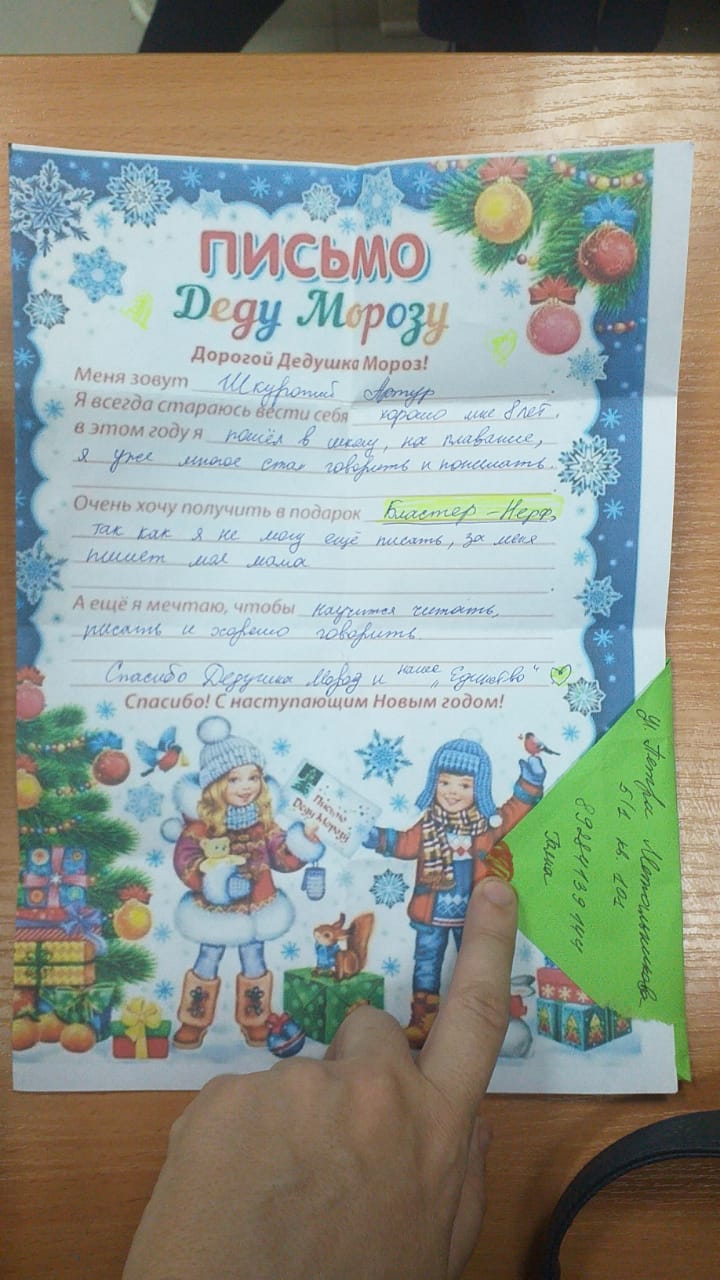 ПИСЬМО
Деду Морозу
Дорогой Дедушка Мороз!
Меня зовут Шкуропий Артур.
Я всегда стараюсь вести себя хорошо мне 8 лет.
в этом году я пошёл в школу, на плавание,
я уже многое стал говорить и понимать.
Очень хочу получить в подарок Бластер-Нерф,
так как я не могу ещё писать, за меня
пишет моя мама
А ещё я мечтаю, чтобы научится читать,
писать и хорошо говорить.
Спасибо Дедушка Мороз и наше „Единство"
Спасибо! С наступающим Новым годом!
Письмо
Деду Морозу
ул Петра Метальникова
5/1 кв 102
89284139144